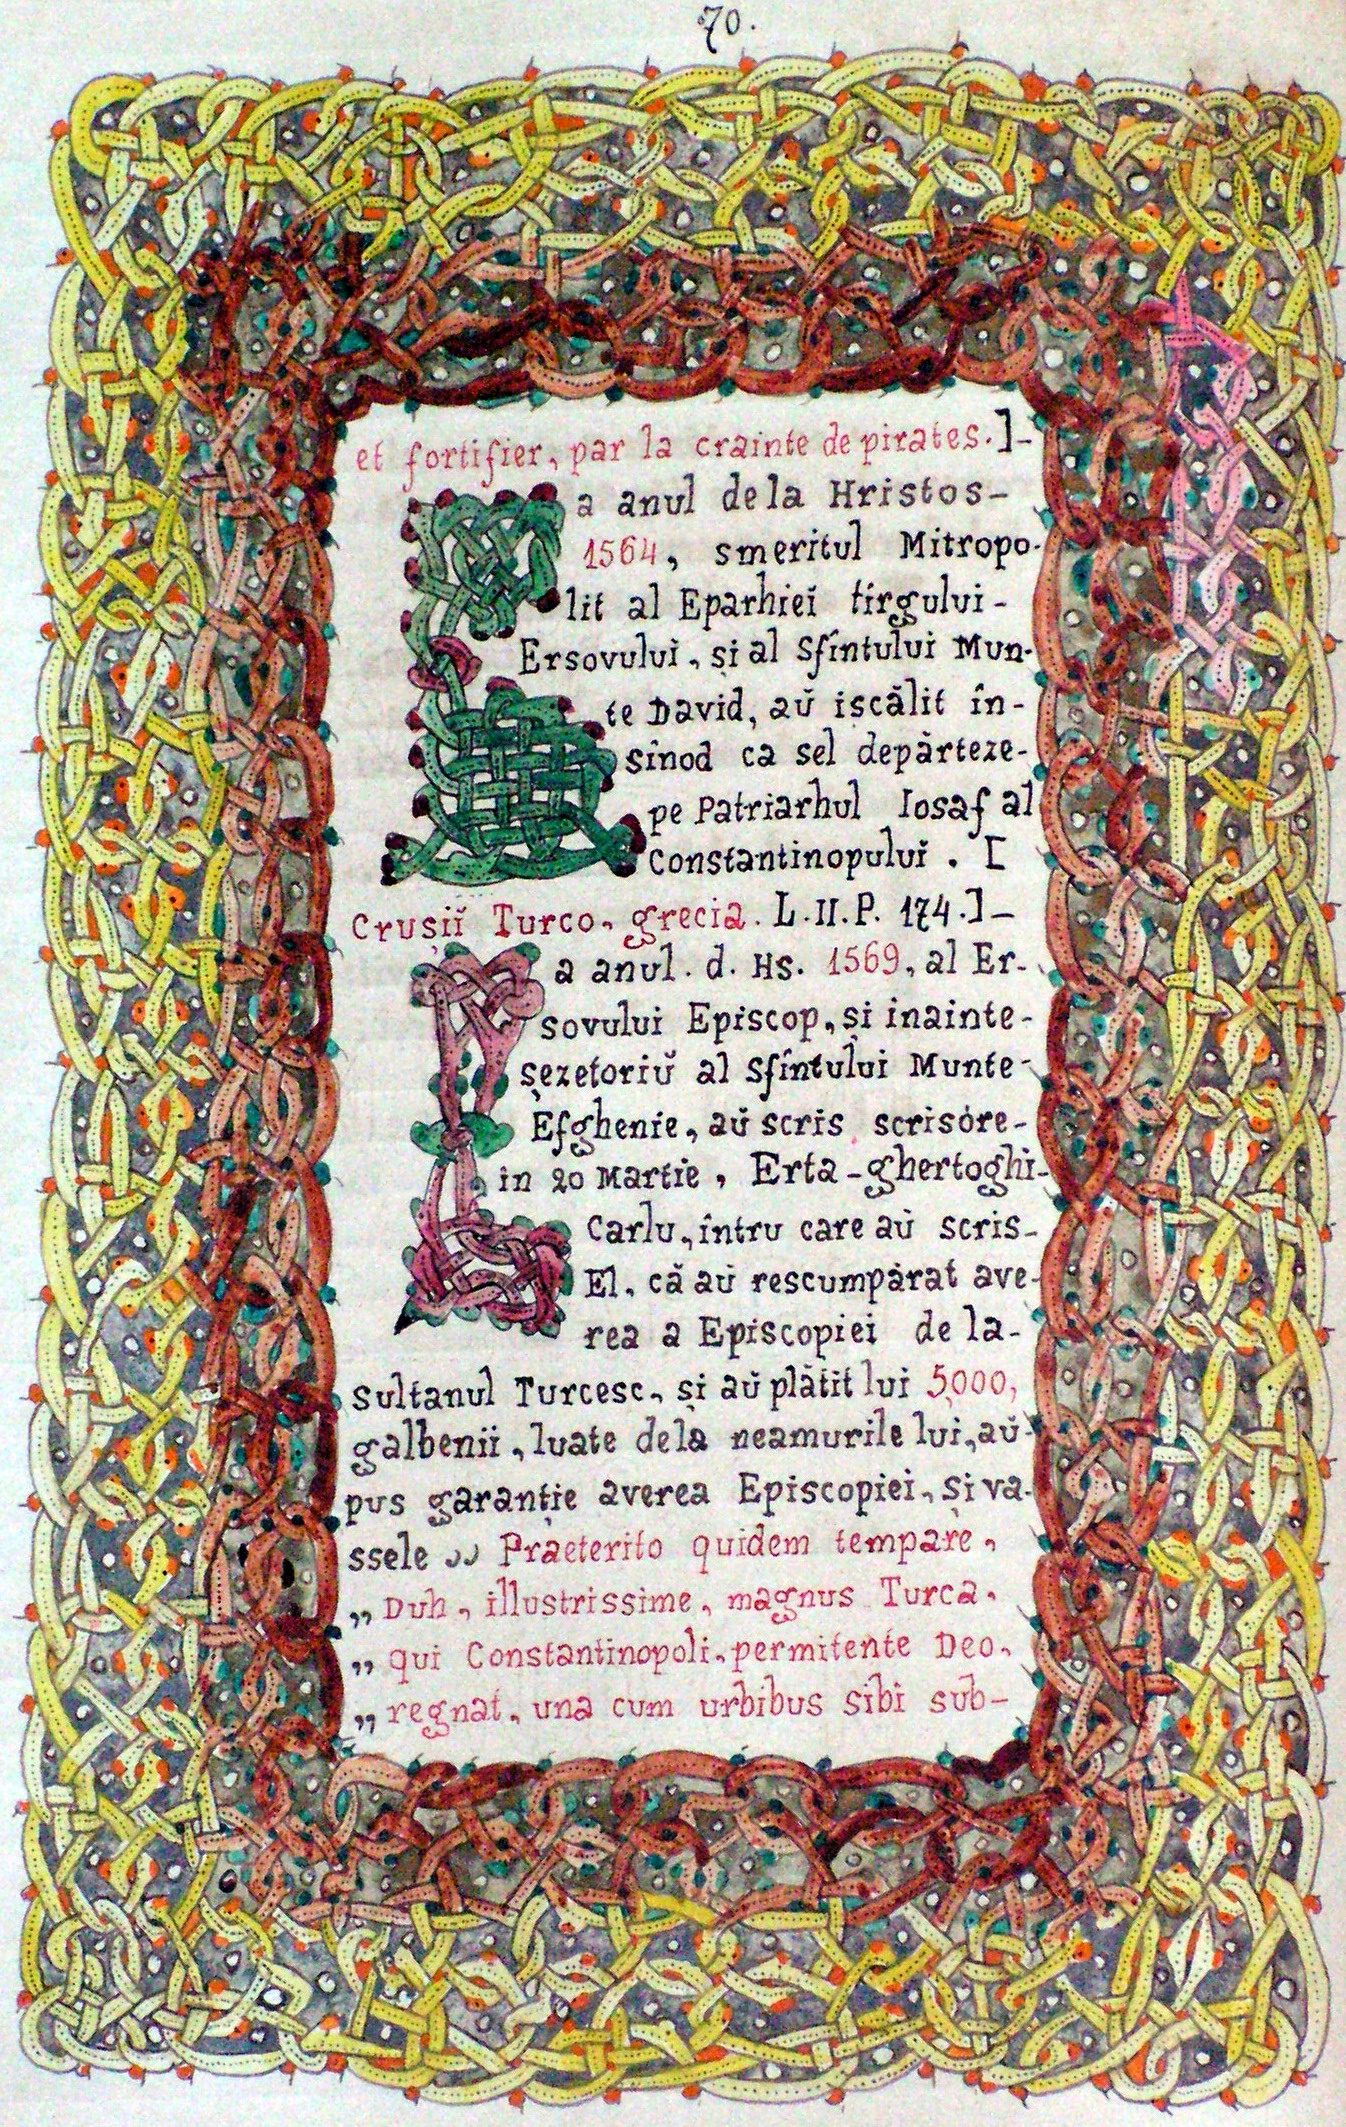 70.
et fortifier, par la crainte de pirates.]-
La anul dela Hristos-
1564, smeritul Mitropo-
lit al Eparhieĭ tîrgului-
Ersovului, și al Sfîntului Mun-
te David, aŭ iscălit în-
sinod ca sel depărteze-
pe Patriarhul Iosaf al
Constantinopuluĭ. [
Crușiĭ Turco, grecia. L.II.P. 174.]-
La anul. d. Hs. 1569, al Er-
sovului Episcop, și inainte-
șezetoriŭ al Sfîntului Munte-
Efghenie, aŭ scris scrisóre-
în 20 Martie, Erta-ghertoghi-
Carlu, întru care aŭ scris-
El, că aŭ rescumpărat ave-
rea a Episcopiei de la-
Sultanul Turcesc, și aŭ plătit lui 5000,
galbenii, luate dela neamurile lui, aŭ-
pus garanție averea Episcopiei, și va-
ssele „ Praeterito quidem tempare,
„ Duh, illustrissime, magnus Turca,
„ qui Constantinopoli, permitente Deo,
„ regnat, una cum urbibus sibi sub-